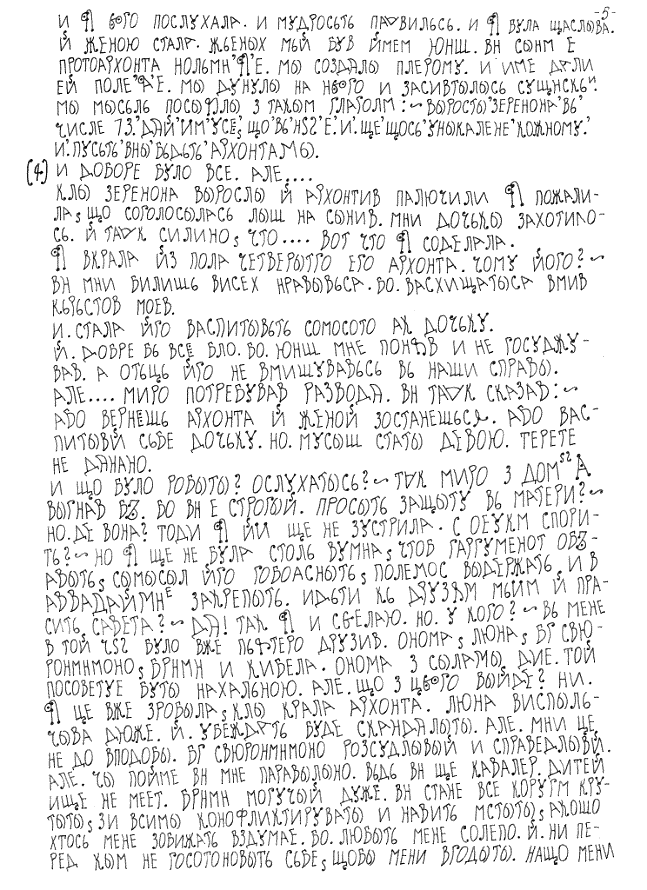 -5-
И Я ЄГО ПОСЛУХАЛА. И МУДРОСЬТЬ ПАВИЛЬСЬ. И Я БУЛА ЩАСЛЫВА.
Й ЖЕНОЮ СТАЛА. ЖЬЕНЫХ МЫЙ БУВ ИМЕМ ЮНШ. ВН СЫНМ Е
ПРОТОАРХОНТА НОЛЬМН'Я'Е. МЫ СОЗДАЛЫ ПЛЕРОМУ. И ИМЕ ДАЛИ
ЕЙ ПОЛЕ'Я'Е. МЫ ДУНУЛЫ НА НЬОГО И ЗАСИВТЫЛЫСЬ СУЩНСКЬИ.
МЫ МЫСЬЛЬ ПОСЫЛЫ З ТАКЫМ ГЛАГОЛМ:~ ВЫРОСТЫ'ЗЕРЕНОНА'ВЬ'
ЧИСЛЕ 73.'ДАЙ'ИМ'УСЕ, ЩО'ВЬ'НS2'Е.'И.'ЩЕ'ЩОСЬ'УНЫКАЛЕНЕ'КОЖНОМУ.'
И.'ПУСЬТЬ'ВНЫ'БЫДЬТЬ'АРХОНТАМЫ.
(4.) И ДОБОРЕ БУЛО ВСЕ. АЛЕ....
КЛЫ ЗЕРЕНОНА ВЫРОСЛЫ Й АРХОНТИВ ПАЛЮЧИЛИ Я ПОЖАЛИ-
ЛА, ЩО СОГОЛОСЫЛАСЬ ЛЫШ НА СЫНИВ. МНИ ДОЧЬКЫ ЗАХОТИЛО-
СЬ. Й ТАК СИЛИНО, ЧТО.... ВОТ ЧТО Я СОДЕЛАЛА.
Я ВКРАЛА ЙЗ ПОЛА ЧЕТВЕРЫТГО ЕГО АРХОНТА. ЧОМУ ЙОГО?~
ВН МНИ БИЛИШЬ ВИСЕХ НРАВЫВЬСА. БО. ВАСХИЩАТЫСА ВМИВ
КЬРЬСТОВ МОЕВ.
И. СТАЛА ЙГО ВАСПИТЫВЬТЬ СОМОСОТО АК ДОЧЬКУ.
Й. ДОБРЕ БЬ ВСЕ БЛО. БО. ЮНШ МНЕ ПОНЯВ И НЕ ГОСУДЖУ-
ВАВ. А ОТЬЦЬ ЙГО НЕ ВМИШУВАВЬСЬ ВЬ НАШИ СПРАВЫ.
АЛЕ.... МИРО ПОТРЕБУВАВ РАЗВОДА. ВН ТАК СКАЗАВ:~
АБО ВЕРНЕШЬ АРХОНТА Й ЖЕНОЙ ЗОСТАНЕШЬСЯ. АБО ВАС-
ПИТЫВЙ СЬБЕ ДОЧЬКУ. НО. МУСЫШ СТАТЫ ДЕВОЮ. ТЕРЕТЕ
НЕ ДАНАНО.
И ЩО БУЛО РОБЫТЫ? ОСЛУХАТЫСЬ?~ ТАК МИРО З ДОМS2А
ВЫГНАВ БЗ. БО ВН Е СТРОГЫЙ. ПРОСЫТЬ ЗАЩЫТУ ВЬ МАТЕРИ?~
НО. ДЕ ВОНА? ТОДИ Я ЙИ ЩЕ НЕ ЗУСТРИЛА. С ОЕУКМ СПОРИ-
ТЬ?~ НО Я ЩЕ НЕ БУЛА СТОЛЬ ВУМНА, ЧТОБ ГАРГУМЕНОТ ОБЗ-
АВЫТЬ, СЫМЫСЫЛ ЙГО ГОБОАСНЫТЬ, ПОЛЕМОС ВЫДЕРЖАТЬ, И В
АВВАДАЙМНЕ ЗАКРЕПЫТЬ. ИДЬТИ КЬ ДРУЗЯМ МЫИМ Й ПРА-
СИТЬ САВЕТА?~ ДА! ТАК Я И СДЕЛАЮ. НО. У КОГО?~ ВЬ МЕНЕ
В ТОЙ ЧS2 БУЛО ВЖЕ ПЬЯТЕРО ДРУЗИВ. ОНОМА, ЛЮНА, БГ СВЮ-
РОНМНМОНО, БРНМН И КИВЕЛА. ОНОМА З СЫЛАМЫ ДИЕ. ТОЙ
ПОСОВЕТУЕ БУТЫ НАХАЛЬНОЮ. АЛЕ. ЩО З ЦЬОГО ВЫЙДЕ? НИ.
Я ЦЕ ВЖЕ ЗРОБЫЛА, КЛЫ КРАЛА АРХОНТА. ЛЮНА ВИСПЫЛЬ-
ЧЫВА ДЮЖЕ. Й. УБЕЖДАТЬ БУДЕ СКАНДАЛЫТЫ. АЛЕ. МНИ ЦЕ
НЕ ДО ВПОДОБЫ. БГ СВЮРОНМНМОНО РОЗСУДЛЫВЫЙ И СПРАВЕДЛЫВЫЙ.
АЛЕ. ЧЫ ПОЙМЕ ВН МНЕ ПАРАВЫЛЫНО. ВЬДЬ ВН ЩЕ КАВАЛЕР. ДИТЕЙ
ИЩЕ НЕ МЕЕТ. БРНМН МОГУЧЫЙ ДУЖЕ. ВН СТАНЕ ВСЕ КОРУГМ КРУ-
ТЫТЫ, ЗИ ВСИМЫ КОНОФЛИКТИРУВАТЫ И НАВИТЬ МСТЫТЫ, АКОЩО
ХТОСЬ МЕНЕ ЗОБИЖАТЬ ВЗДУМАЕ. БО. ЛЮБЫТЬ МЕНЕ СОЛЕПО. Й. НИ ПЕ-
РЕД КЫМ НЕ ГОСОТОНОВЫТЬ СЬБЕ, ЩОБЫ МЕНИ ВГОДЫТЫ. НАЩО МЕНИ